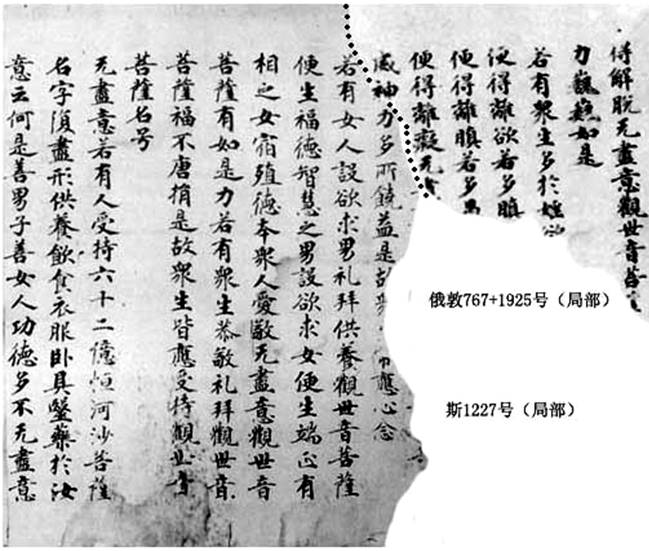 得解脫无盡意觀世音菩
力巍巍如是
若有衆生多於婬欲
便得離欲若多瞋
便得離瞋若多
便得離癡无
威神力多所饒益是故衆應心念
若有女人設欲求男礼拜供養觀世音菩薩
便生福德智慧之男設欲求女便生端正有
相之女宿殖德本衆人愛敬无盡意觀世音
菩薩有如是力若有衆生恭敬礼拜觀世音
菩薩福不唐捐是故衆生皆應受持觀世音
菩薩名号
无盡意若有人受持六十二億恒河沙菩薩
名字復盡形供養飲食衣服卧具醫藥於汝
意云何是善男子善女人功德多不无盡意
俄敦767+1925号（局部）
斯1227号（局部）